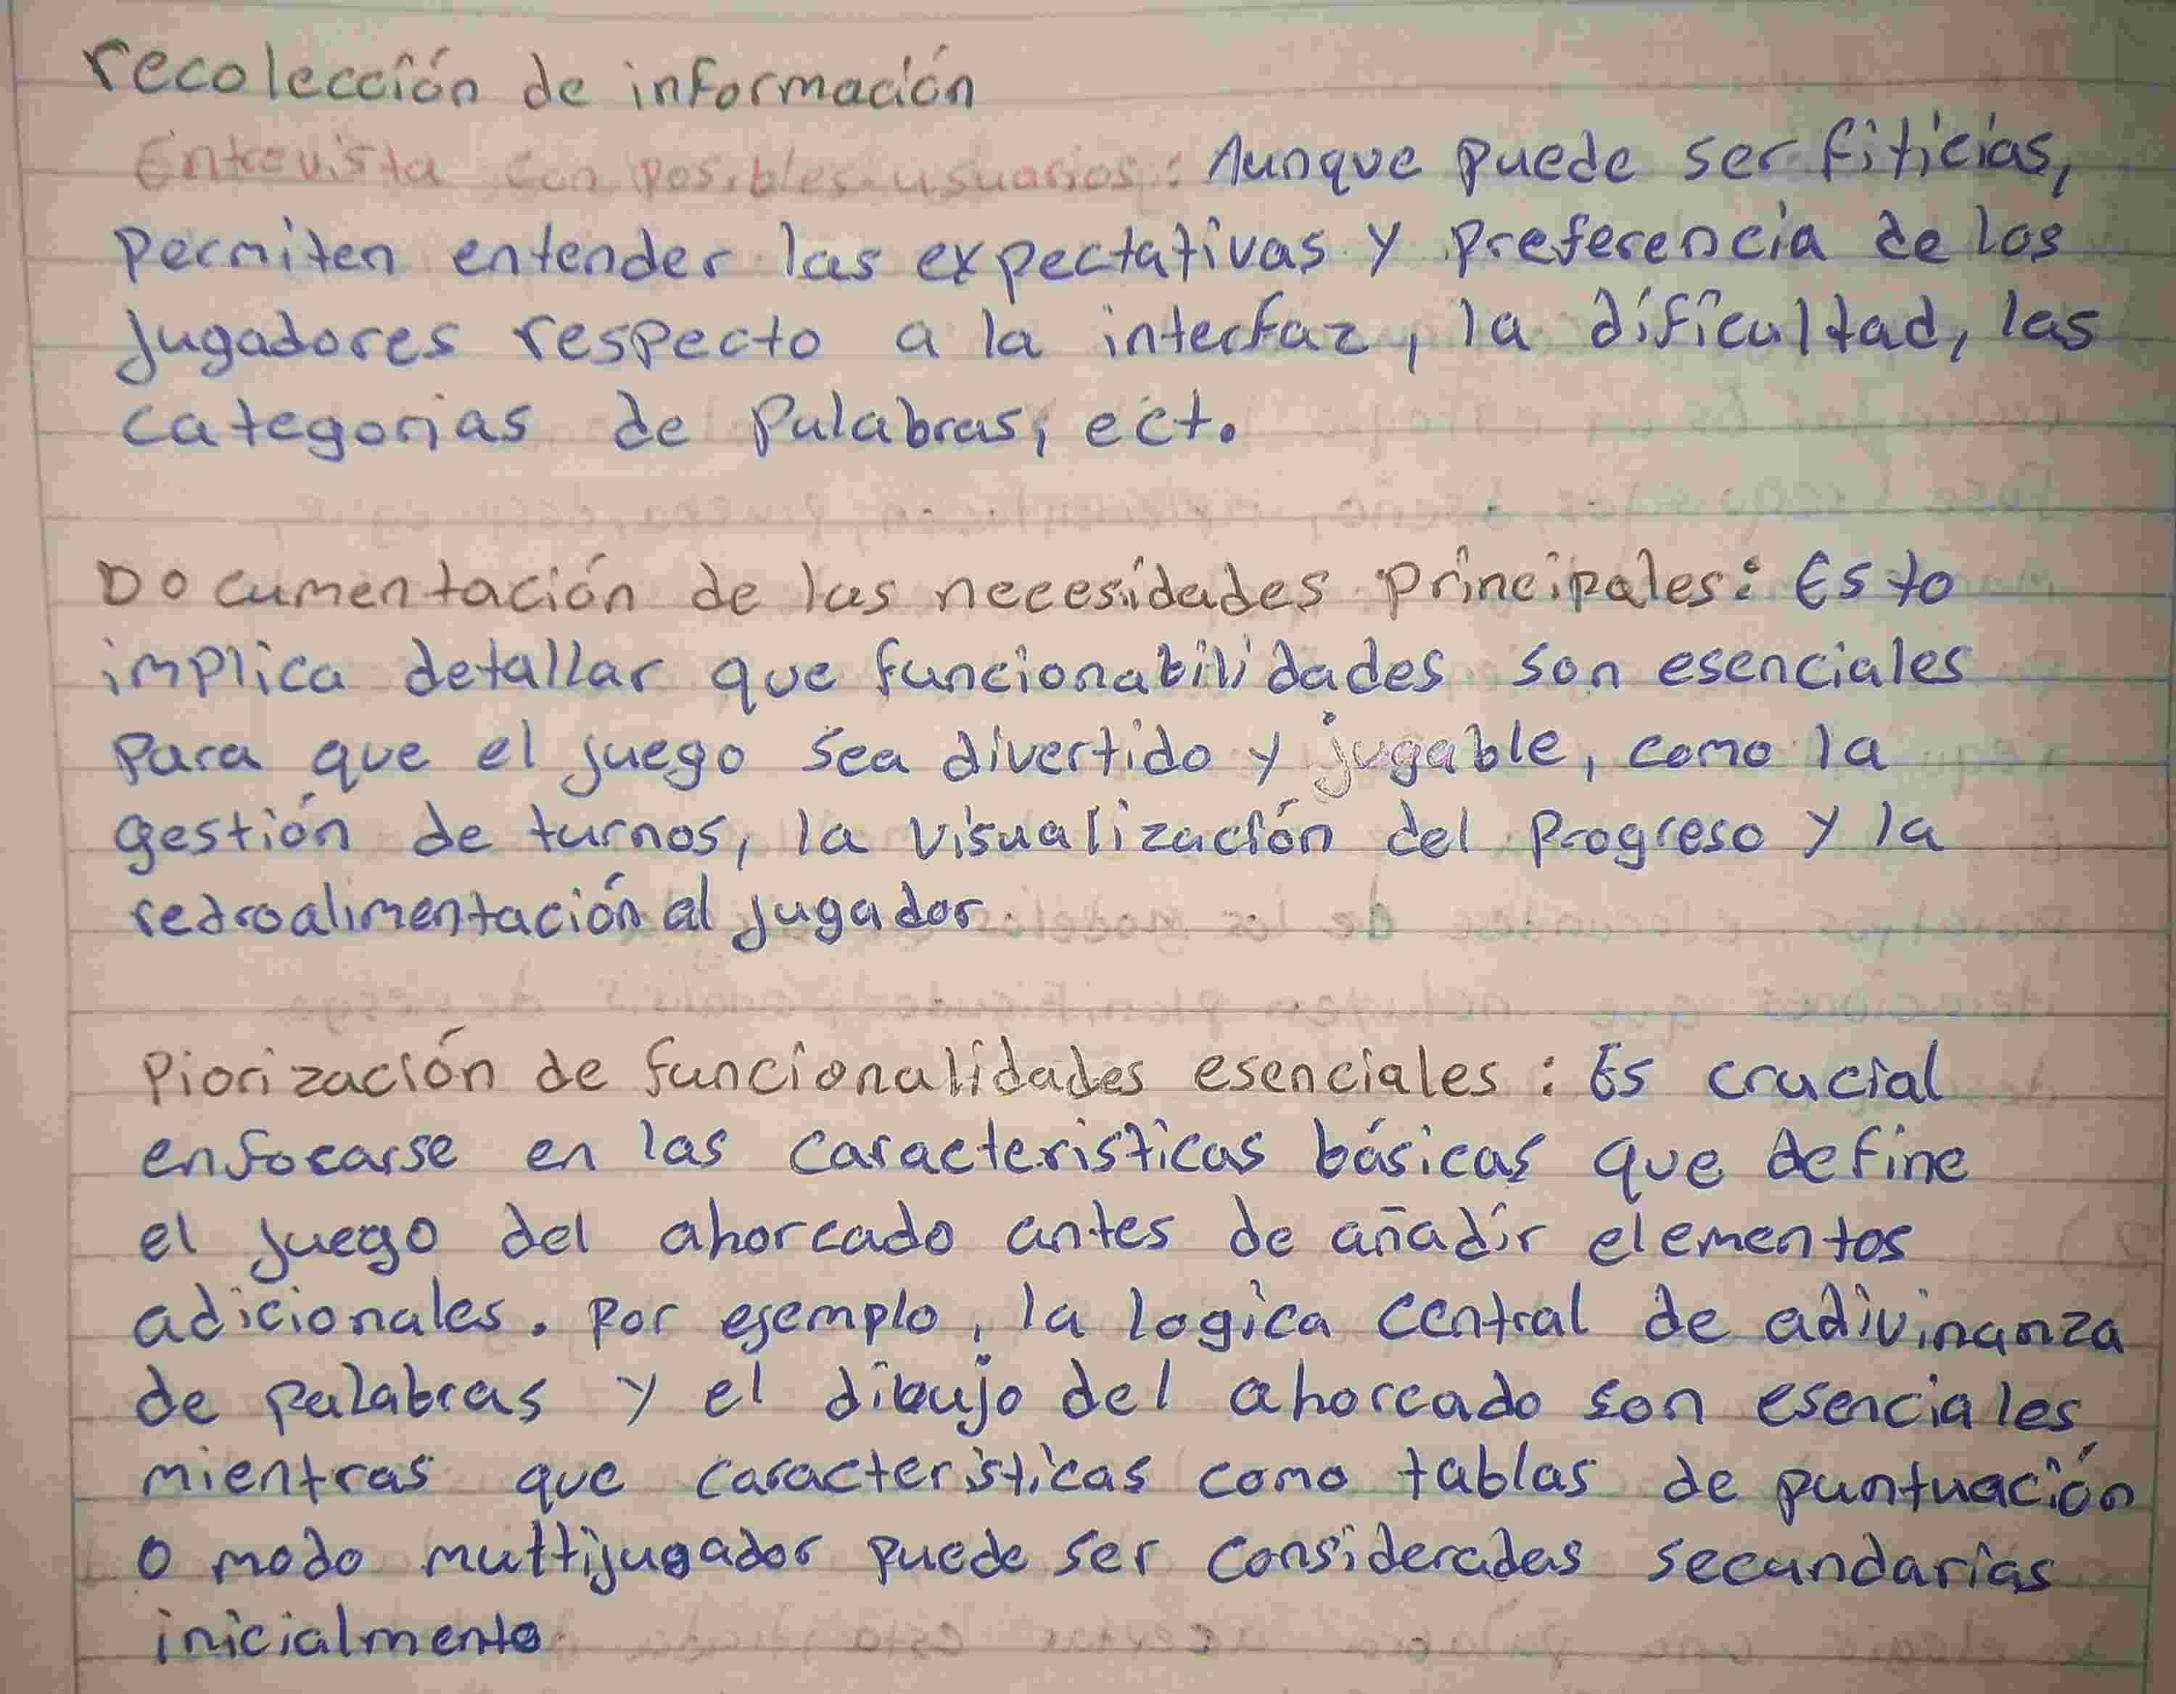 recolección de información
Entrevista con posibles usuarios: Aunque puede ser fiticias,
permiten entender las expectativas y preferencia de los
jugadores respecto a la interfaz, la dificultad, las
categorias de palabras, ect.
Documentación de las necesidades principales: Esto
implica detallar que funcionabilidades son esenciales
para que el juego sea divertido y jugable, como la
gestión de turnos, la visualización del progreso y la
redroalimentación al jugador.
Piorización de funcionalidades esenciales: Es crucial
enfocarse en las caracteristicas básicas que define
el juego del ahorcado antes de añadir elementos
adicionales. Por ejemplo, la logica central de adivinanza
de palabras y el dibujo del ahorcado son esenciales
mientras que caracteristicas como tablas de puntuación
o modo multijugador puede ser consideradas secundarias
inicialmente